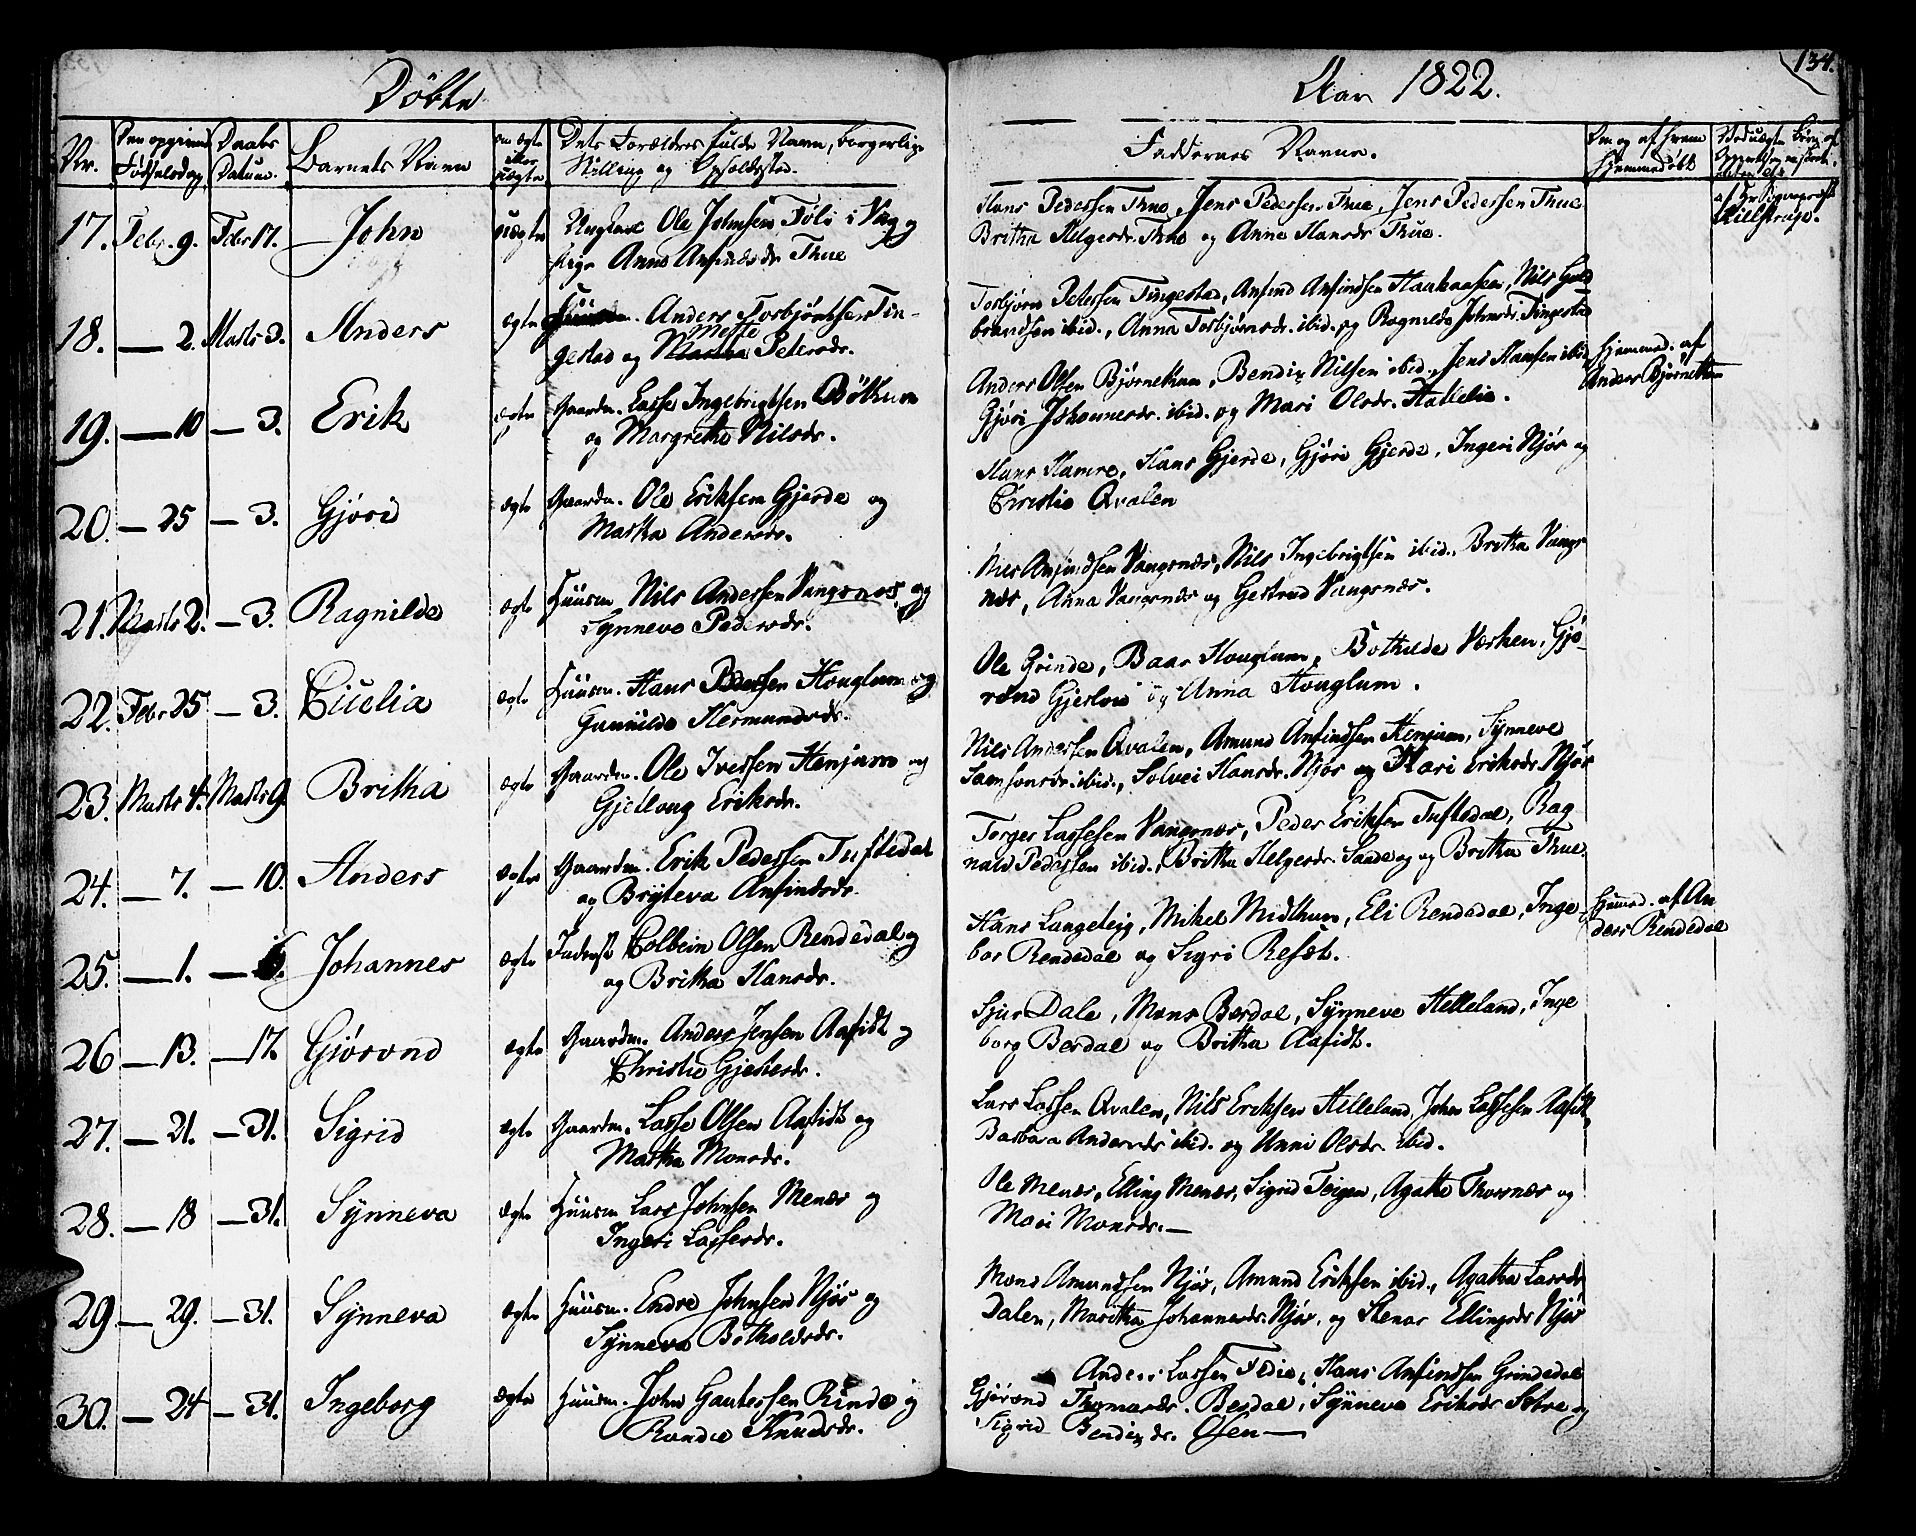 Døbte
Aar 1822.
134.
Nr.
Fødselsdag
Daabs
Datum.
Barnets Navn
Dets Forældres fulde Navn, borgerlige
Stilling og Opholdssted.
Faddernes Navne.
17. Febr. 9. Febr 17. John uægte Ungkarl Ole Johnsen Føli i Vig og
Pige Anna Anfinsdr Thue
Hans Pedersen Thue, Jens Pedersen Thue, Jens Pedersen Thue
Britha Helgesdr. Thue og Anna Hansdr Thue.
18. — 2. Marts 3. Anders ægte Anders Torbjørnsen Tin-
gestad og Mette Petersdr.
Torbjørn Petersen Tingestad, Anfind Anfindsen Haukaasen, Nils Guld
brandsen ibid., Anna Torbjørnsdr. ibid. og Ragnilde Johnsdr. Tingestad
19. — 10 — 3. Erik ægte Gaardm. Lasse Ingebrigtsen Bøthun
og Margrethe Nilsdr.
Anders Olsen Bjørnethun, Bendix Nilsen ibid., Jens Hansen ibid.
Gjøri Johannesdr. ibid. og Mari Olsdr. Hallelie.
Hjemmed. af
Anders Bjørnethun
20. — 25 — 3. Gjøri ægte Gaardm. Ole Eriksen Gjerde og
Martha Andersdr.
Hans Hamre, Hans Gjerde, Gjøri Gjerde, Ingeri Njøs og
Christie Qvalen
21. Marts 2. — 3. Ragnilde ægte Huusm Nils Andersen Vangsnes, og
Synneve Pedersdr.
Nils Anfindsen Vangsnæs, Nils Ingebrigtsen ibid., Britha Vangs
næs, Anna Vangsnæs og Gertrud Vangsnæs.
22. Febr 25 — 3. Cicelia ægte Huusm. Hans Pedersen Houglum og
Gunnilde Hermundsdr.
Ole Grinde, Baar Houglum, Bothilde Værken, Gjø-
rond og Anna Houglum.
23. Marts 4. Marts 9. Britha ægte Gaardm. Ole Iversen Henjum og
Gjellaug Eriksdr.
Nils Andersen Qvalen, Amund Anfindsen Henjum, Synneve
Samsonsdr. ibid., Solvei Hansdr. Njøs og Kari Eriksdr Njøs
24. — 7. — 10. Anders ægte Gaardm. Erik Pedersen Tuftedal
og Bryteva Anfindsdr.
Torger Lassesen Vangsnæs, Peder Eriksen Tuftedal, Rag
nald Pedersen ibid., Britha Helgesdr. og Britha Thue.
25. — 1. — Johannes ægte Inderst Colbein Olsen Rendedal og
og Britha Hansdr.
Hans Langeteig, Mikel Midthun, Eli Rendedal, Inge
bor Rendedal og Sigri Resæt.
Hjemmd. af An
ders Rendedal
26 — 13. — 17. Gjørond ægte Gaardm. Anders Jensen Aafidt og
Christie Gjestsdr.
Sjur Dale, Mons Berdal, Synneve Helleland, Inge
borg Berdal og Britha Aafidt.
27. — 21. — 31. Sigrid ægte Gaardm. Lasse Olsen Aafidt og
Martha Monsdr.
Lars Lassen Qvalen, Nils Eriksen Helleland, John Lassesen Aafidt,
Barbara Andersdr ibid. og Unni Olsdr. ibid.
28. — 18 — 31. Synneva ægte Huusm Lars Johnsen Menæs og
Ingeri Lassesdr.
Ole Menæs, Elling Menæs, Sigrid Teigen, Agathe Thorsnæs og
Mari Monsdr. —
29 — 29. — 31. Synneva ægte Huusm. Endre Johnsen Njøs og
Synneva Botholdsdr.
Mons Amundsen Njøs, Amund Eriksen ibid., Agatha Larsdr
Dalen, Maritha Johannesdr. Njøs. og Stenor Ellingsdr Njøs
30. — 24 — 31. Ingeborg ægte Huusm. John Gautessen Rinde og
Randie Knudsdr.
Anders Lassen Fedie, Hans Anfindsen Grindedal
Gjørond Thomasdr. Berdal, Synneva Eriksdr Sætre og
Sigrid Bendixdr. Olsen —